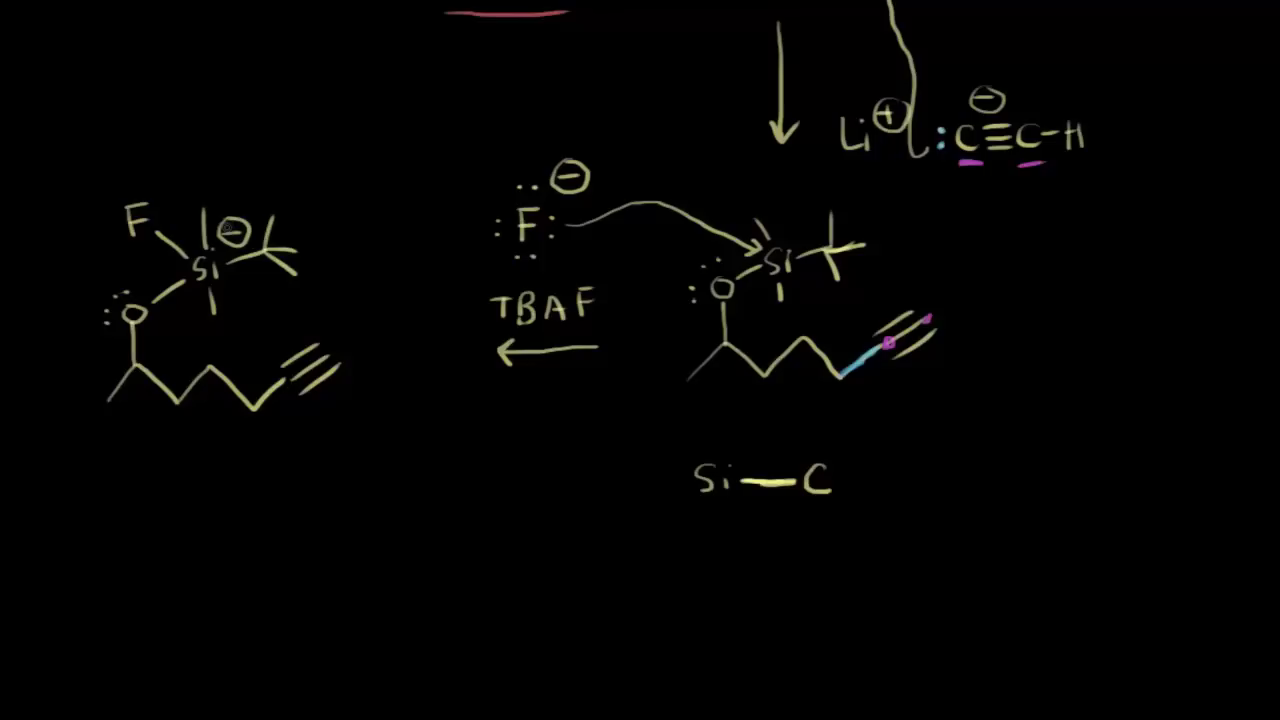 Li⊕ :C≡C-H ⊖
F Si ⊖
:O
:F: ⊖
TBAF
Si
:O
Si-C